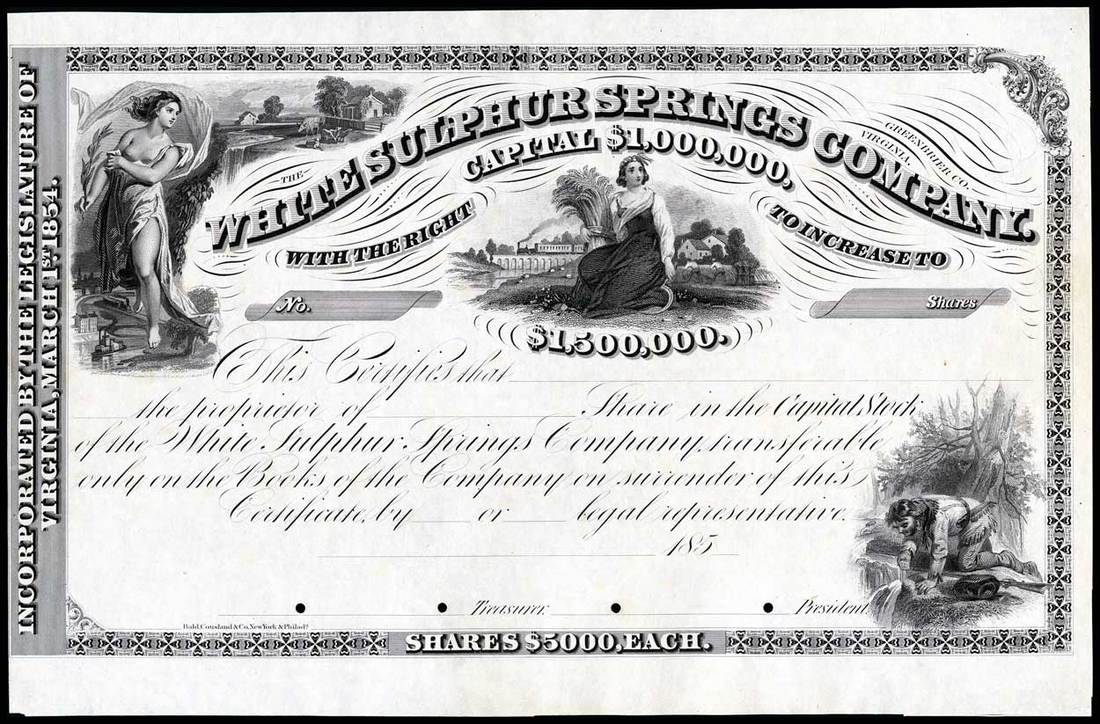 INCORPORATED BY THE LEGISLATURE OF
VIRGINIA, MARCH 1ST 1854.
THE
WHITE SULPHUR SPRINGS COMPANY.
GREENBRIER CO.
VIRGINIA.
CAPITAL $1,000,000,
WITH THE RIGHT TO INCREASE TO
No. Shares
$1,500,000.
This Certifies that
the proprietor of Share in the Capital Stock
of the White Sulphur Springs Company, transferable
only on the Books of the Company on surrender of this
Certificate, by or legal representative.
185
Treasurer. President.
Bald, Cousland & Co, New York & Philada
SHARES $5000, EACH.